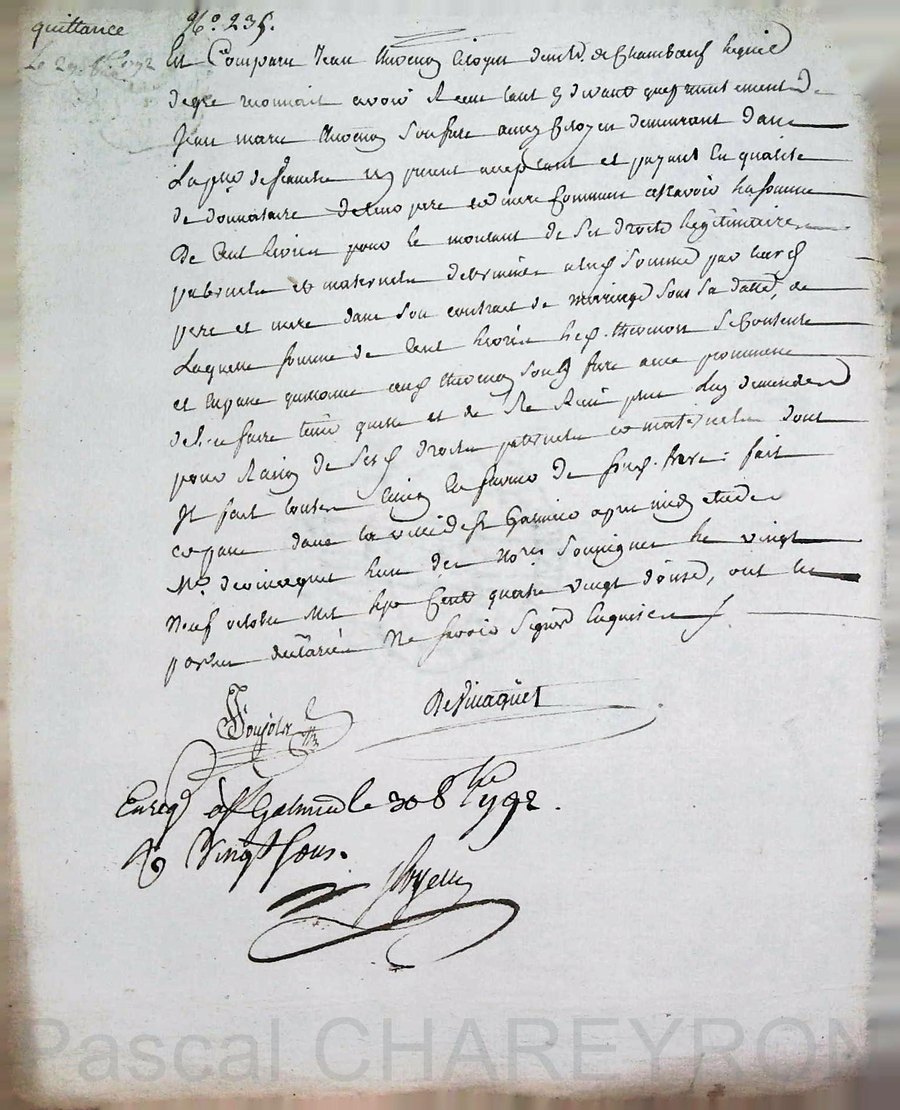 quittance N.° 235.
Le 29. 8bre 1792
Est Comparu Jean thevenon Citoyen demt. de Chambœuf lequel
de gré reconnait avoir Recu tant cy devant que presentement de
Jean marie thevenon son frere aussy Citoyen demeurant dans
La psse de icy present acceptant et payant En qualité
de donnataire de leurs pere et mere Commun assavoir la somme
De Cent livres pour le montant de Ses droits legitimaires
paternels et maternels determinés a lad somme par leurs
pere et mere dans Son contrat de mariage Sous Sa datte, de
Laquelle somme de Cent livres led. thevenon Se Contente
et En passe quittance aud thevenon Sond frere avec promesse
de l'en faire tenir quitte et de Ne Rien plus luy demender
pour Raison de Sesd droits paternels et maternels dont
Il fait toutes En faveur de Sond. frere: fait
et passé dans la ville de St Galmier apres midy etude de
Me. devincaquet l'un des Nores Soussignes le vingt
Neuf octobre Mil Sept Cent quatre vingt douse, ont les
parties declarées Ne Savoir Signer Enquises
Poujols
DeVincaquet
Enreg à St Galmier le 30 8bre 1792.
R Vingt Sous.
Pascal CHAREYRON